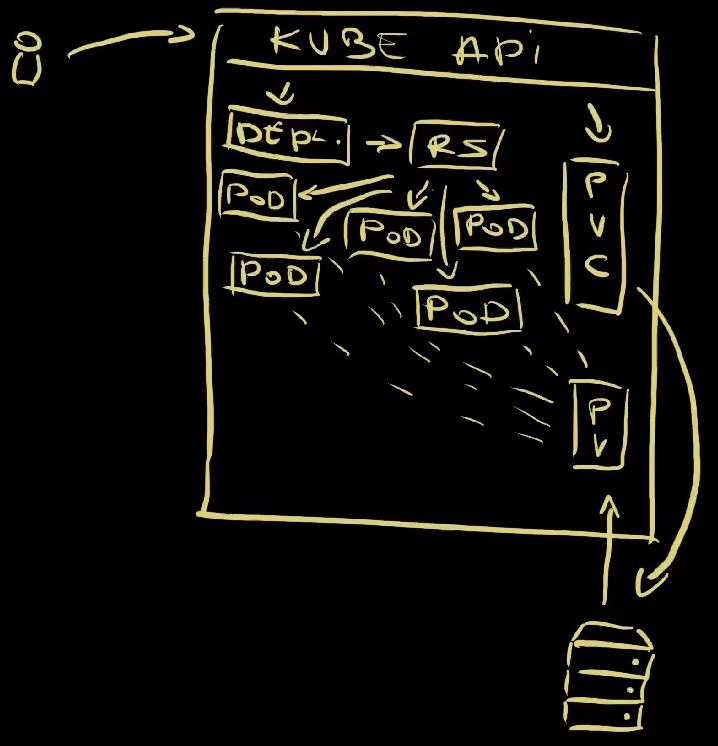 KUBE API
DEPL.
RS
POD
POD
POD
POD
POD
PVC
PV